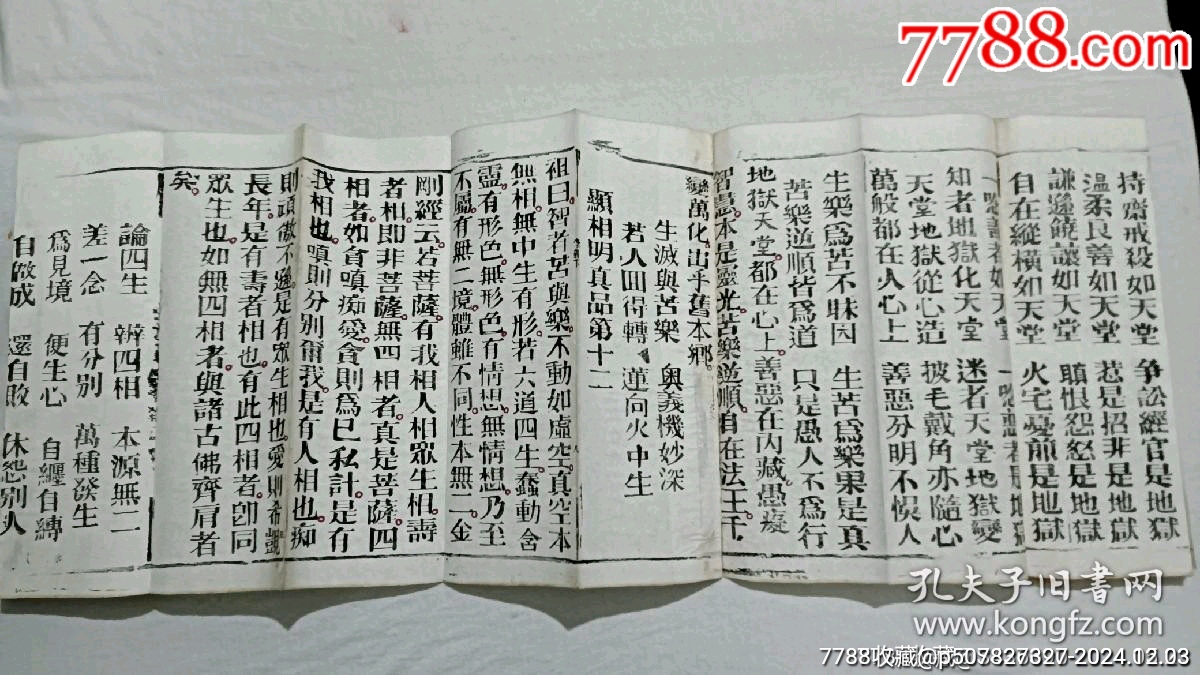 7788.com
持齋戒殺如天堂 爭訟經官是地獄
溫柔良善如天堂 惹是招非是地獄
謙遜饒讓如天堂 瞋恨怨怒是地獄
自在縱橫如天堂 火宅憂煎是地獄
知者地獄化天堂 迷者天堂地獄變
天堂地獄從心造 披毛戴角亦隨心
萬般都在人心上 善惡分明不悞人
生樂爲苦不昧因 生苦爲樂果是眞
苦樂逆順皆爲道 只是愚人不爲行
地獄天堂都在心上善惡在内藏愚癡
智慧本是靈光苦樂逆順自在法王千
變萬化出乎舊本鄉
生滅與苦樂 奥義機妙深
若人回得轉 蓮向火中生
顯相明真品第十二
祖曰智者苦與樂不動如虛空真空本
無相無中生有形若六道四生蠢動含
靈有形色無形色有情想無情想乃至
不屬有無二境體雖不同性本無二金
剛經云若菩薩有我相人相眾生相壽
者相即非菩薩無四相者真是菩薩四
相者如貪嗔痴愛貪則爲已私計是有
我相也嗔則分別爾我是有人相也痴
則頑傲不遜是有眾生相也愛則希覬
長年是有壽者相也有此四相者卽同
眾生也如無四相者與諸古佛齊肩者
矣
論四生 辨四相 本源無二
差一念 有分別 萬種發生
爲見境 便生心 自纏自縛
自做成 還自敗 休怨別人
孔夫子旧书网
www.kongfz.com
7788收藏@p507827327-2024.12.03